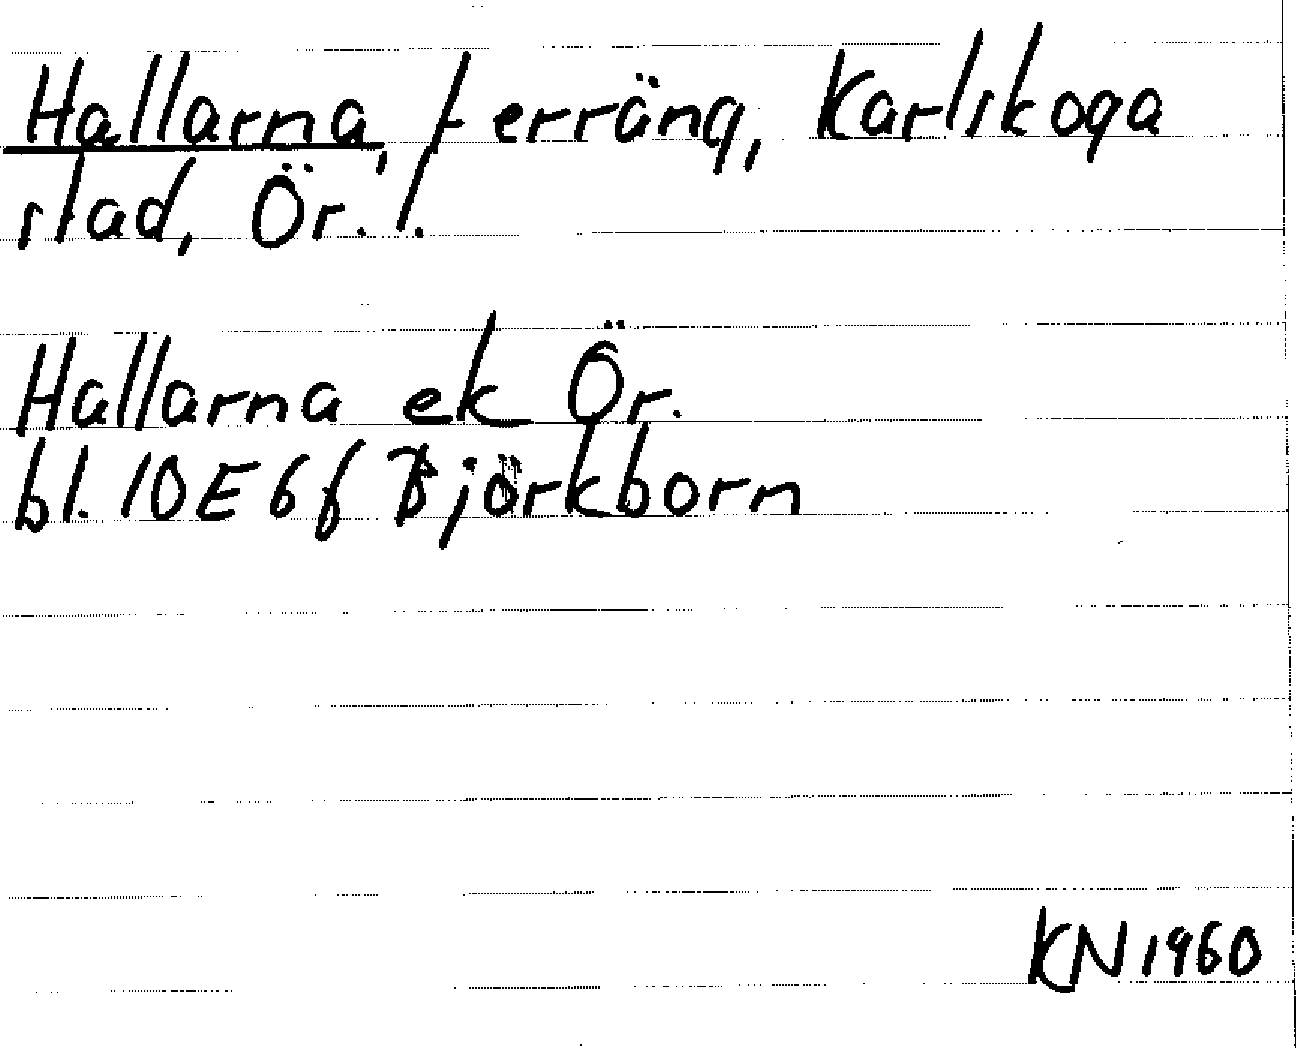 Hallarna, terräng, Karlskoga
stad, Ör. l.
Hallarna ek Ör.
bl. 10E6f Björkborn
KN1960